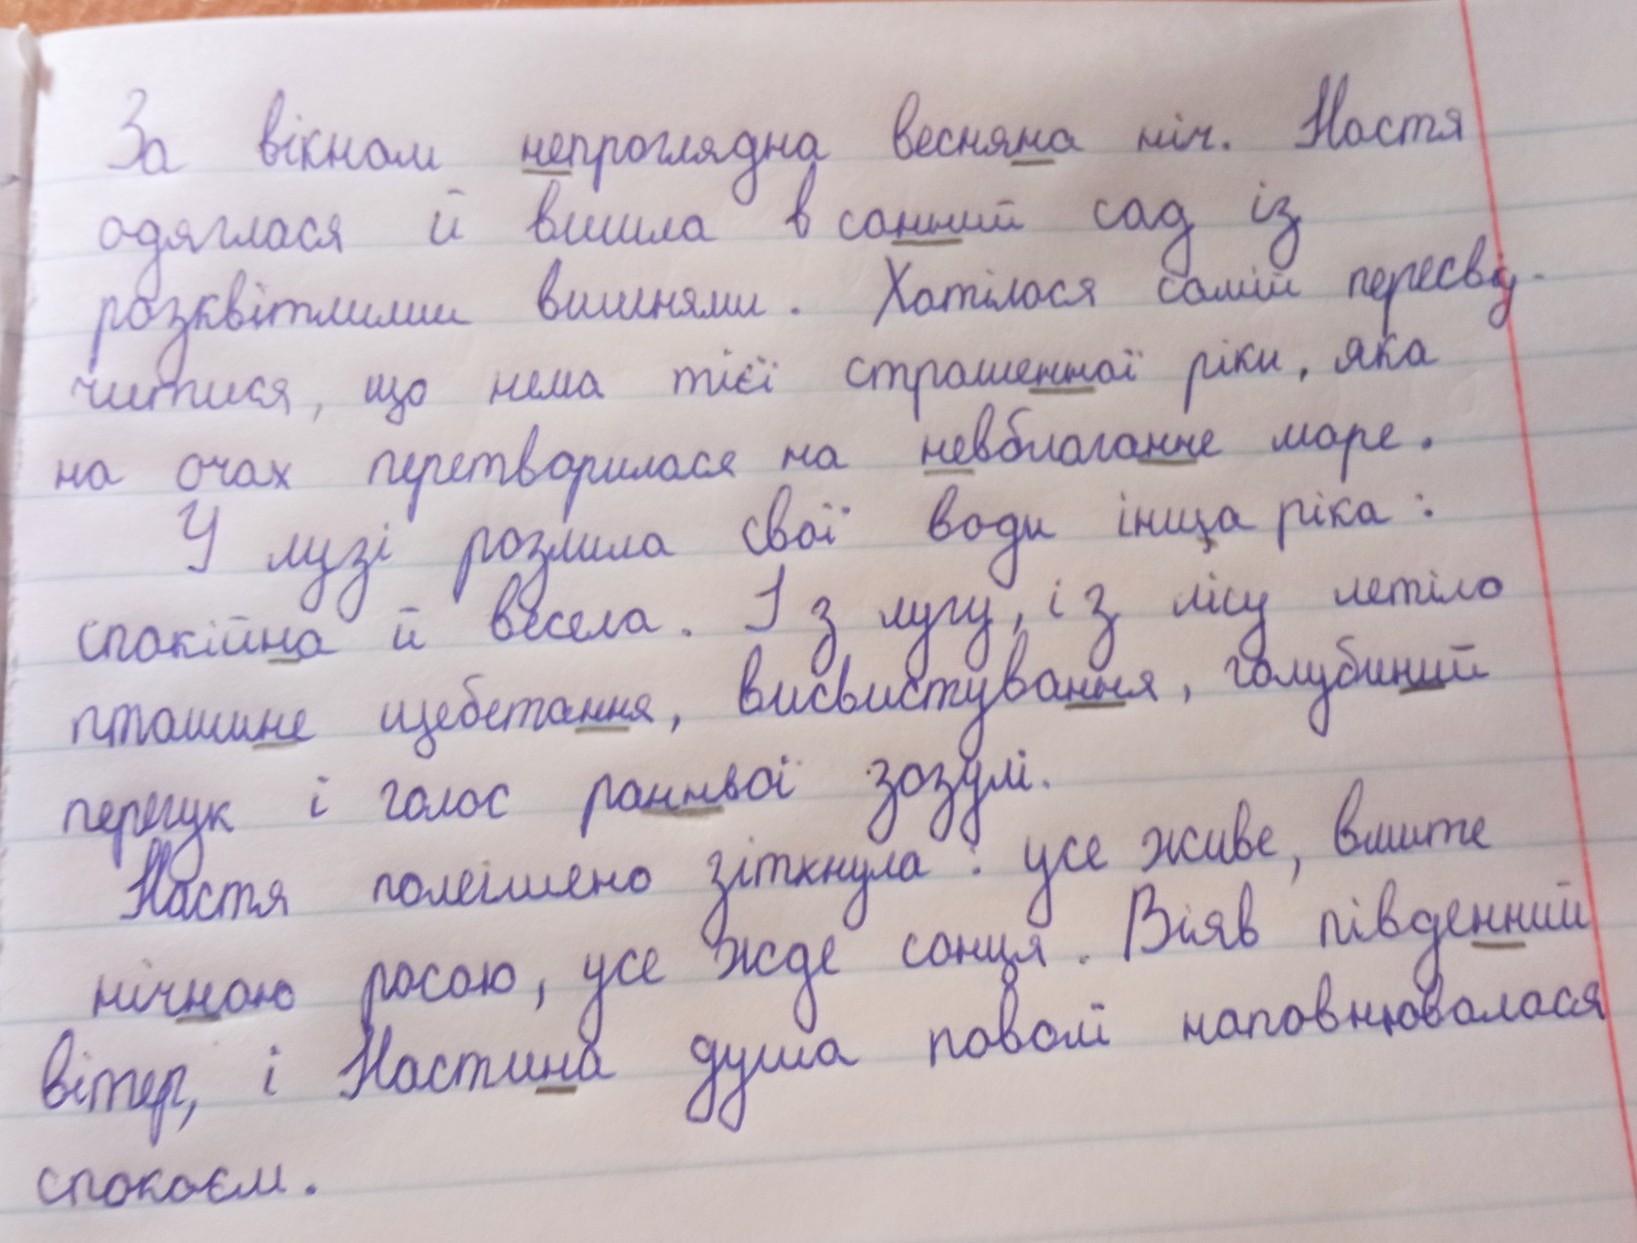 За вікном непроглядна весняна ніч. Настя
одяглася й вийшла в сонний сад із
розквітлими вишнями. Хотілося самій пересвід-
читися, що нема тієї страшенної ріки, яка
на очах перетворилася на невблаганне море.
У лузі розлила свої води інща ріка:
спокійна й весела. І з лугу, і з лісу летіло
пташине щебетання, висвистування, голубиний
перегук і голос ранньої зозулі.
Настя полегшено зіткнула: усе живе, вмите
нічною росою, усе жде сонця. Віяв південний
вітер, і Настина душа поволі наповнювалася
спокоєм.